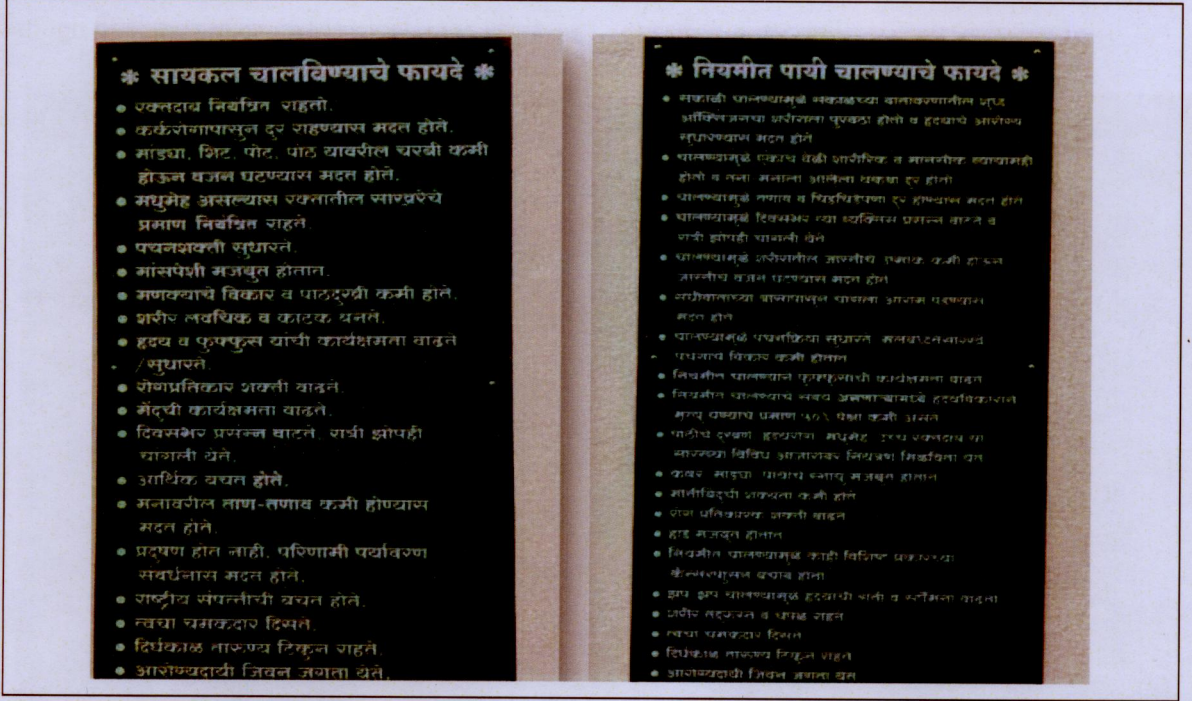 * सायकल चालविण्याचे फायदे *
• रक्तदाब नियंत्रित राहतो.
• कर्करोगापासुन दुर राहण्यास मदत होते.
• मांड्या, शिट, पोट, पाठ यावरील चरबी कमी
होऊन वजन घटण्यास मदत होते.
• मधुमेह असल्यास रक्तातील साखरेचे
प्रमाण नियंत्रित राहते.
• पचनशक्ती सुधारते.
• मांसपेशी मजबुत होतात.
• मणक्याचे विकार व पाठदुखी कमी होते.
• शरीर लवचिक व काटक बनते.
• हृदय व फुफ्फुस यांची कार्यक्षमता वाढते
/सुधारते.
• रोगप्रतिकार शक्ती वाढते.
• मेंदुची कार्यक्षमता वाढते.
• दिवसभर प्रसंन्न वाटते. रात्री झोपही
चागली येते.
• आर्थिक बचत होते.
• मनावरील ताण-तणाव कमी होण्यास
मदत होते.
• प्रदुषण होत नाही. परिणामी पर्यावरण
संवर्धनास मदत होते.
• राष्ट्रीय संपत्तीची बचत होते.
• त्वचा चमकदार दिसते.
• दिर्घकाळ तारुण्य टिकुन राहते.
• आरोग्यदायी जिवन जगता येते.
* नियमीत पायी चालण्याचे फायदे *
• सकाळी चालण्यामुळे सकाळच्या वातावरणातील शुध्द
ऑक्सिजनचा शरीराला पुरवठा होतो व हृदयाचे आरोग्य
सुधारण्यास मदत होते
• चालण्यामुळे एकाच वेळी शारीरिक व मानसीक व्यायामही
होतो व तना मनाला आलेला थकवा दुर होतो
• चालण्यामुळे तणाव व चिडचिडेपणा दुर होण्यास मदत होते
• चालण्यामुळे दिवसभर त्या व्यक्तिस प्रसन्न वाटते व
रात्री झोपही चागली येते
• चालण्यामुळे शरीरातील जास्तीचे कमी होऊन
जास्तीचे वजन घटण्यास मदत होते
• संधीवाताच्या त्रासापासुन चागला आराम पडण्यास
मदत होते
• चालण्यामुळे पचनक्रिया सुधारते
पचनाचे विकार कमी होतात
• नियमीत चालण्याने फुफ्फुसाची कार्यक्षमता वाढते
• नियमीत चालण्याचे सवय असणाऱ्यांमध्ये हृदयविकाराने
मृत्यू येण्याचे प्रमाण ५०% पेक्षा कमी असते
• पाठीचे दुखणे हृदयरोग मधुमेह उच्च रक्तदाब या
सारख्या विविध आजारांवर नियंत्रण मिळविता येते
• कंबर मांड्या पायाचे स्नायु मजबुत होतात
• मोतीबिंदुची शक्यता कमी होते
• रोग प्रतिकारक शक्ती वाढते
• हाडे मजबुत होतात
• नियमीत चालण्यामुळे काही विशिष्ट प्रकारच्या
कॅन्सरपासुन बचाव होतो
• झप झप चालण्यामुळे हृदयाची गती व स्टॅमिना वाढतो
• शरीर तंदरुस्त व चपळ राहते
• त्वचा चमकदार दिसते
• दिर्घकाळ तारुण्य टिकुन राहते
• आरोग्यदायी जिवन जगता येते